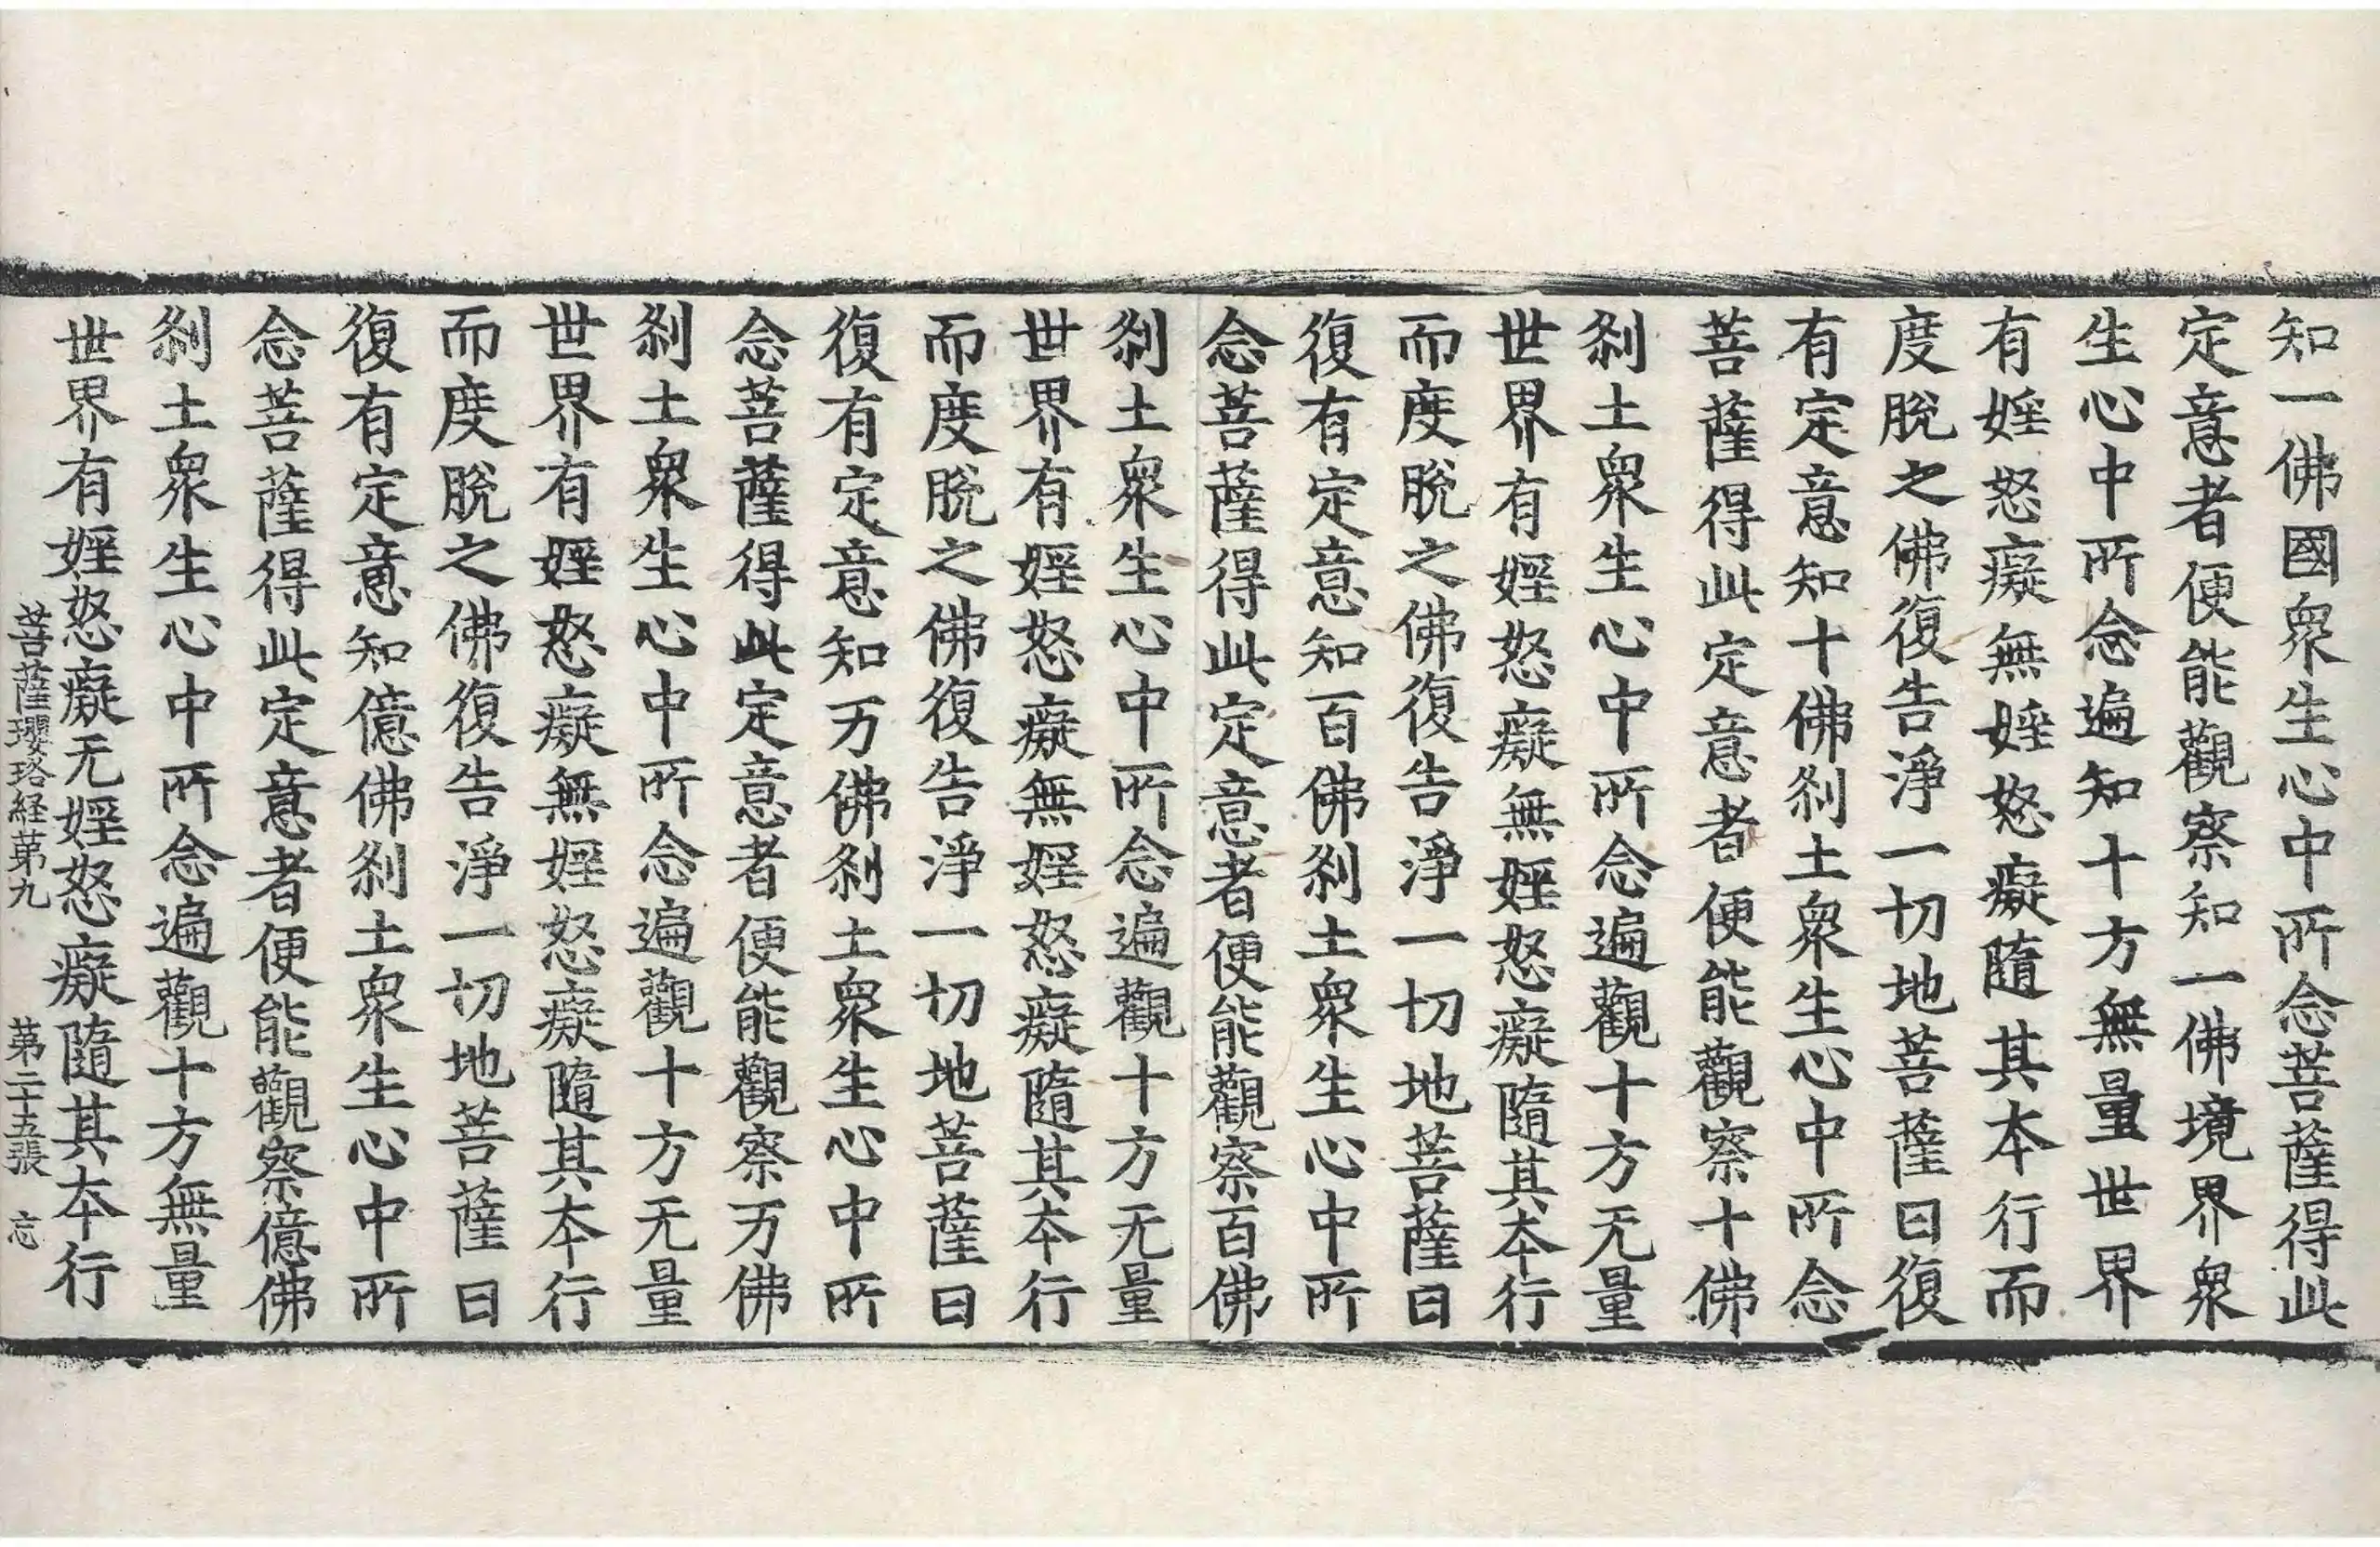 知一佛國衆生心中所念菩薩得此
定意者便能觀察知一佛境界衆
生心中所念遍知十方無量世界
有婬怒癡無婬怒癡隨其本行而
度脫之佛復告淨一切地菩薩曰復
有定意知十佛刹土衆生心中所念
菩薩得此定意者便能觀察十佛
刹土衆生心中所念遍觀十方无量
世界有婬怒癡無婬怒癡隨其本行
而度脫之佛復告淨一切地菩薩曰
復有定意知百佛刹土衆生心中所
念菩薩得此定意者便能觀察百佛
刹土衆生心中所念遍觀十方无量
世界有婬怒癡無婬怒癡隨其本行
而度脫之佛復告淨一切地菩薩曰
復有定意知万佛刹土衆生心中所
念菩薩得此定意者便能觀察万佛
刹土衆生心中所念遍觀十方无量
世界有婬怒癡無婬怒癡隨其本行
而度脫之佛復告淨一切地菩薩曰
復有定意知億佛刹土衆生心中所
念菩薩得此定意者便能觀察億佛
刹土衆生心中所念遍觀十方無量
世界有婬怒癡无婬怒癡隨其本行
菩薩瓔珞経苐九 苐二十五張 忘